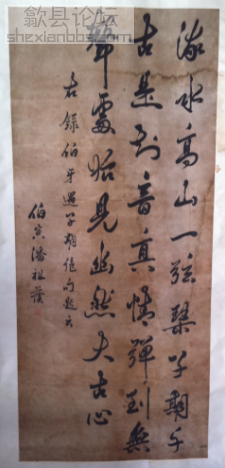 歙县论坛
shexianbbs.com
流水高山一弦琴子期千
古是知音真情弹到无
声处始见幽然太古心
右录伯牙遇子期绝句题云
伯寅潘祖荫